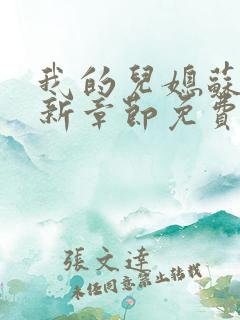 我的兒媳蘇
新章節免費
張文達
未經同意禁止轉載